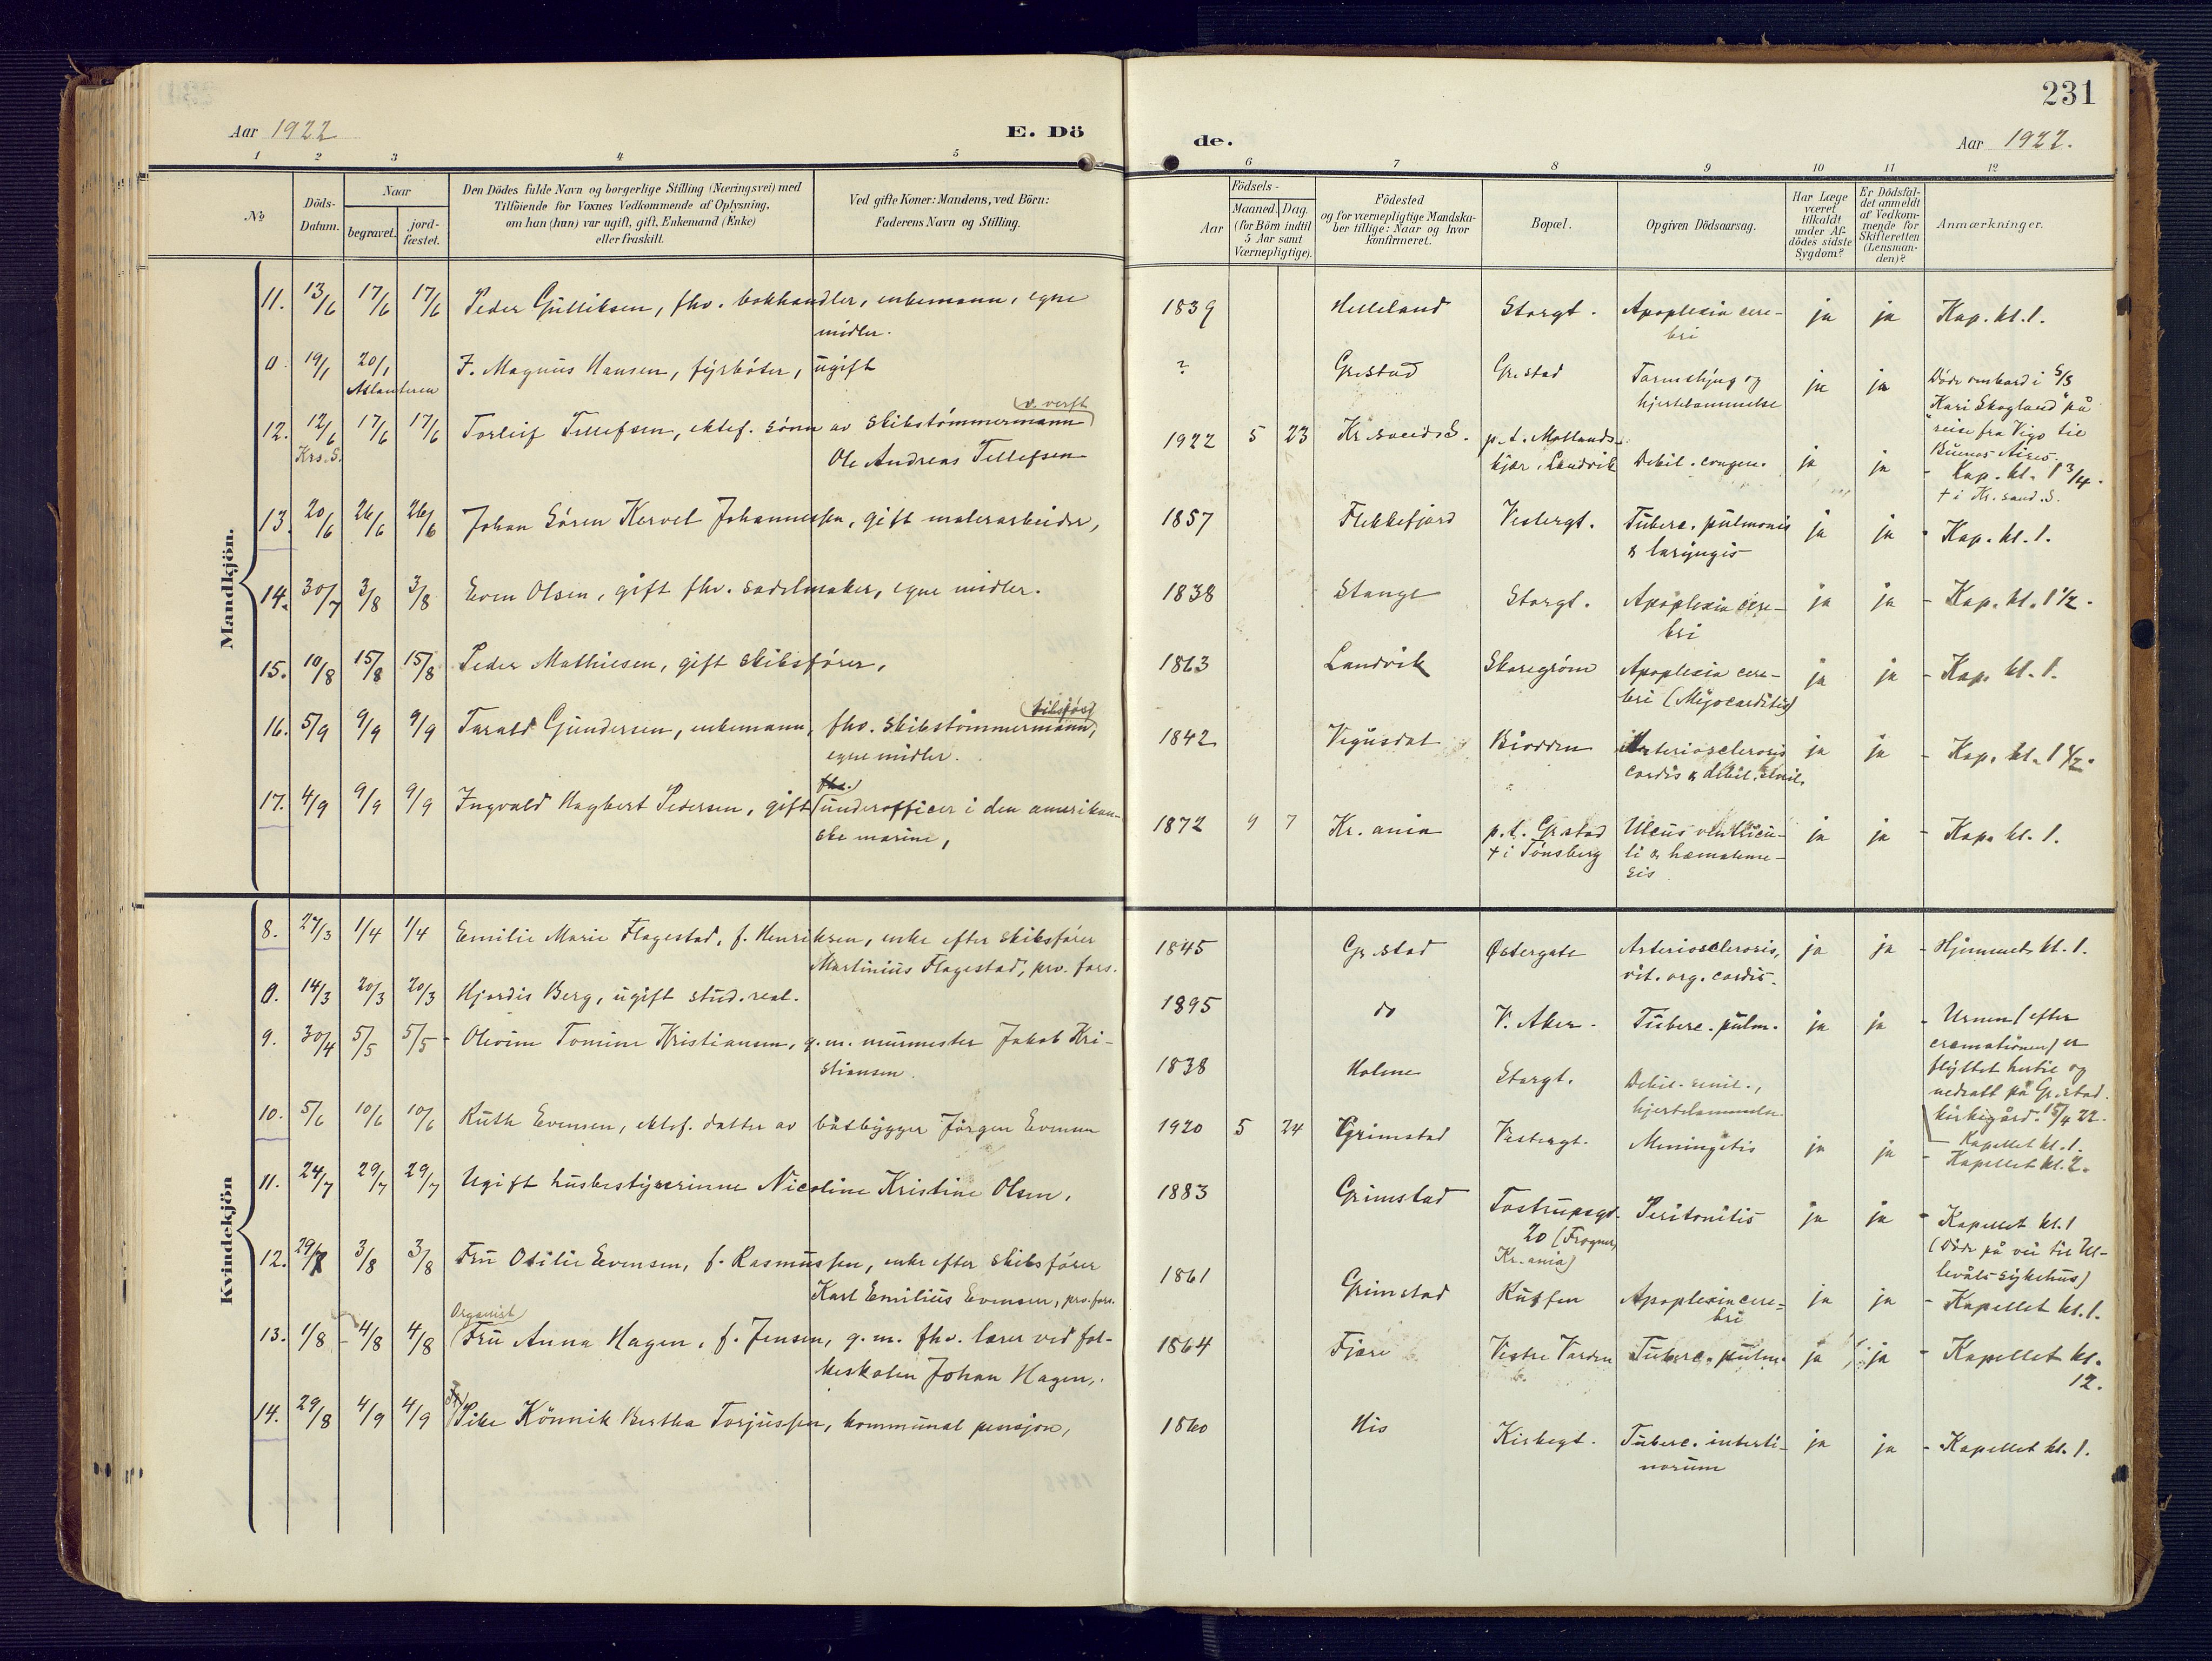 231
Aar 1922
E. Dö
de.
Aar 1922.
1 2 3 4 5 6 7 8 9 10 11 12
No
Döds-
Datum.
Naar
begravet.
jord-
fæstet.
Den Dödes fulde Navn og borgerlige Stilling (Næringsvei) med
Tilföiende for Voxnes Vedkommende af Oplysning,
om han (hun) var ugift, gift, Enkemand (Enke)
eller fraskilt.
Ved gifte Koner: Mandens, ved Börn:
Faderens Navn og Stilling.
Födsels-
Aar
Maaned. Dag.
(for Börn indtil
5 Aar samt
Værnepligtige).
Födested
og for værnepligtige Mandska-
ber tillige: Naar og hvor
konfirmeret.
Bopæl.
Opgiven Dödsaarsag.
Har Læge
været
tilkaldt
under Af-
dödes sidste
Sygdom?
Er Dödsfal-
det anmeldt
af Vedkom-
mende for
Skifteretten
(Lensman-
den)?
Anmærkninger.
Mandkjön.
11. 13/6 17/6 17/6 Peder Gulliksen, fhv. bokhandler, enkemann, egne
midler.
1839 Helleland Storgt. Apoplexia cere-
bri
ja ja Kap. kl. 1.
0. 19/1 20/1 F. Magnus Hansen, fyrbøter, ugift
Atlanteren
? Gr.stad Gr.stad Tarmslyng og
hjertelammelse
ja ja Døde ombord i S/S
"Kari Skogland" på
reise fra Vigo til
Buenos Aires.
12. 12/6 17/6 17/6 Torleif Tellefsen, ektef. sønn av skibstømmermann
(v. verft
Krs.S.
Ole Andreas Tellefsen
1922 5 23 Kr.sand S. p.t. Mollands-
kjær, Landvik Debil. congen. ja ja - Kap. kl. 1 3/4.
+ i Kr.sand.S.
13. 20/6 26/6 26/6 Johan Sören Kervel Johannessen, gift malerarbeider,
1857 Flekkefjord Vestergt. Tuberc. pulmonis
& laryngis
ja ja - Kap. kl. 1.
14. 30/7 3/8 3/8 Even Olsen, gift fhv. sadelmaker, egne midler.
1838 Stange Storgt. Apoplexia cere-
bri
ja ja - Kap. kl. 1 1/2.
15. 10/8 15/8 15/8 Peder Mathiesen, gift skibsfører,
1863 Landvik Skaregrøm Apoplexia cere-
bri (Myocarditis)
ja ja - Kap. kl. 1.
16. 5/9 9/9 9/9 Tarald Gundersen, enkemann, fhv. skibstømmermann,
egne midler.
1842 Vegusdal Biodden Arteriosclerosis
cordis & debil. senil.
ja ja - Kap. kl. 1 1/2.
17. 4/9 9/9 9/9 Ingvald Hagbert Pedersen, gift underofficer i den amerikan-
fhv.
ske marine,
1872 9 7 Kr.ania p.t. Gr.stad
+ i Tønsberg
Ulcus ventricu-
li & hæmateme-
sis
ja ja - Kap. kl. 1.
Kvindekjön
8. 27/3 1/4 1/4 Emilie Marie Flagestad, f. Henriksen, enke efter skibsfører
Martinius Flagestad, priv. fors.
1845 Gr.stad Østergate Arteriosclerosis,
vit. org. cordis.
ja ja - Hjemmet kl. 1.
0. 14/3 20/3 20/3 Hjørdis Berg, ugift stud. real.
1895 do V. Aker. Tuberc. pulm. ja ja - Urnen (efter
cremationen) er
flyttet hertil og
nedsatt på Gr.stad
kirkegård. 15/4 22.
9. 30/4 5/5 5/5 - Olevine Tomine Kristiansen, g.m. murmester Jakob Kri-
stiansen.
1838 Holme Storgt. Debil. senil.,
hjertelammelse
- Kapellet kl. 1.
10. 5/6 10/6 10/6 Ruth Evensen, ektef. datter av båtbygger Jørgen Evensen
1920 5 24 Grimstad Vestergt. Meningitis ja ja - Kapellet kl. 2.
11. 24/7 29/7 29/7 Ugift husbestyrerinne Nicoline Kristine Olsen,
1883 Grimstad Tostrupsgt.
20 (Frogner,
Kr.ania)
Peritonitis ja ja - Kapellet kl. 1
(Døde på vei til Ul-
levåls sykehus)
12. 29/7 3/8 3/8 Fru Otilie Evensen, f. Rasmussen, enke efter skibsfører
Karl Emilius Evensen, priv. fors.
1861 Grimstad Apoplexia cere-
bri
ja ja - Kapellet kl. 1.
13. 1/8 - 4/8 4/8 Fru Anna Hagen, f. Jensen, g.m. fhv. lærer ved fol-
Organist
keskolen Johan Hagen,
1864 Fjære Vestre Varden Tuberc. pulm. ja ja - Kapellet kl.
12.
14. 29/8 4/9 4/9 Pike Könnik Bertha Torjussen, kommunal pensjon,
1860 His Kirkegt. Tuberc. intesti-
norum
ja ja - Kapellet kl. 1.